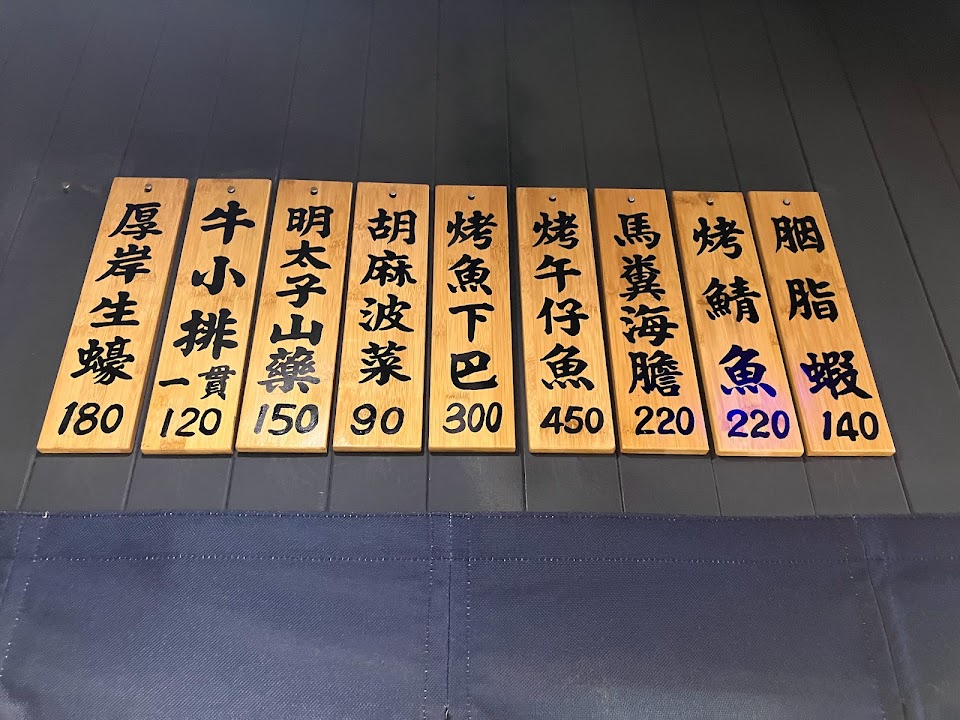 厚岸生蠔
180
牛小排
一貫
120
明太子山藥
150
胡麻波菜
90
烤魚下巴
300
烤午仔魚
450
馬糞海膽
220
烤鯖魚
220
胭脂蝦
140